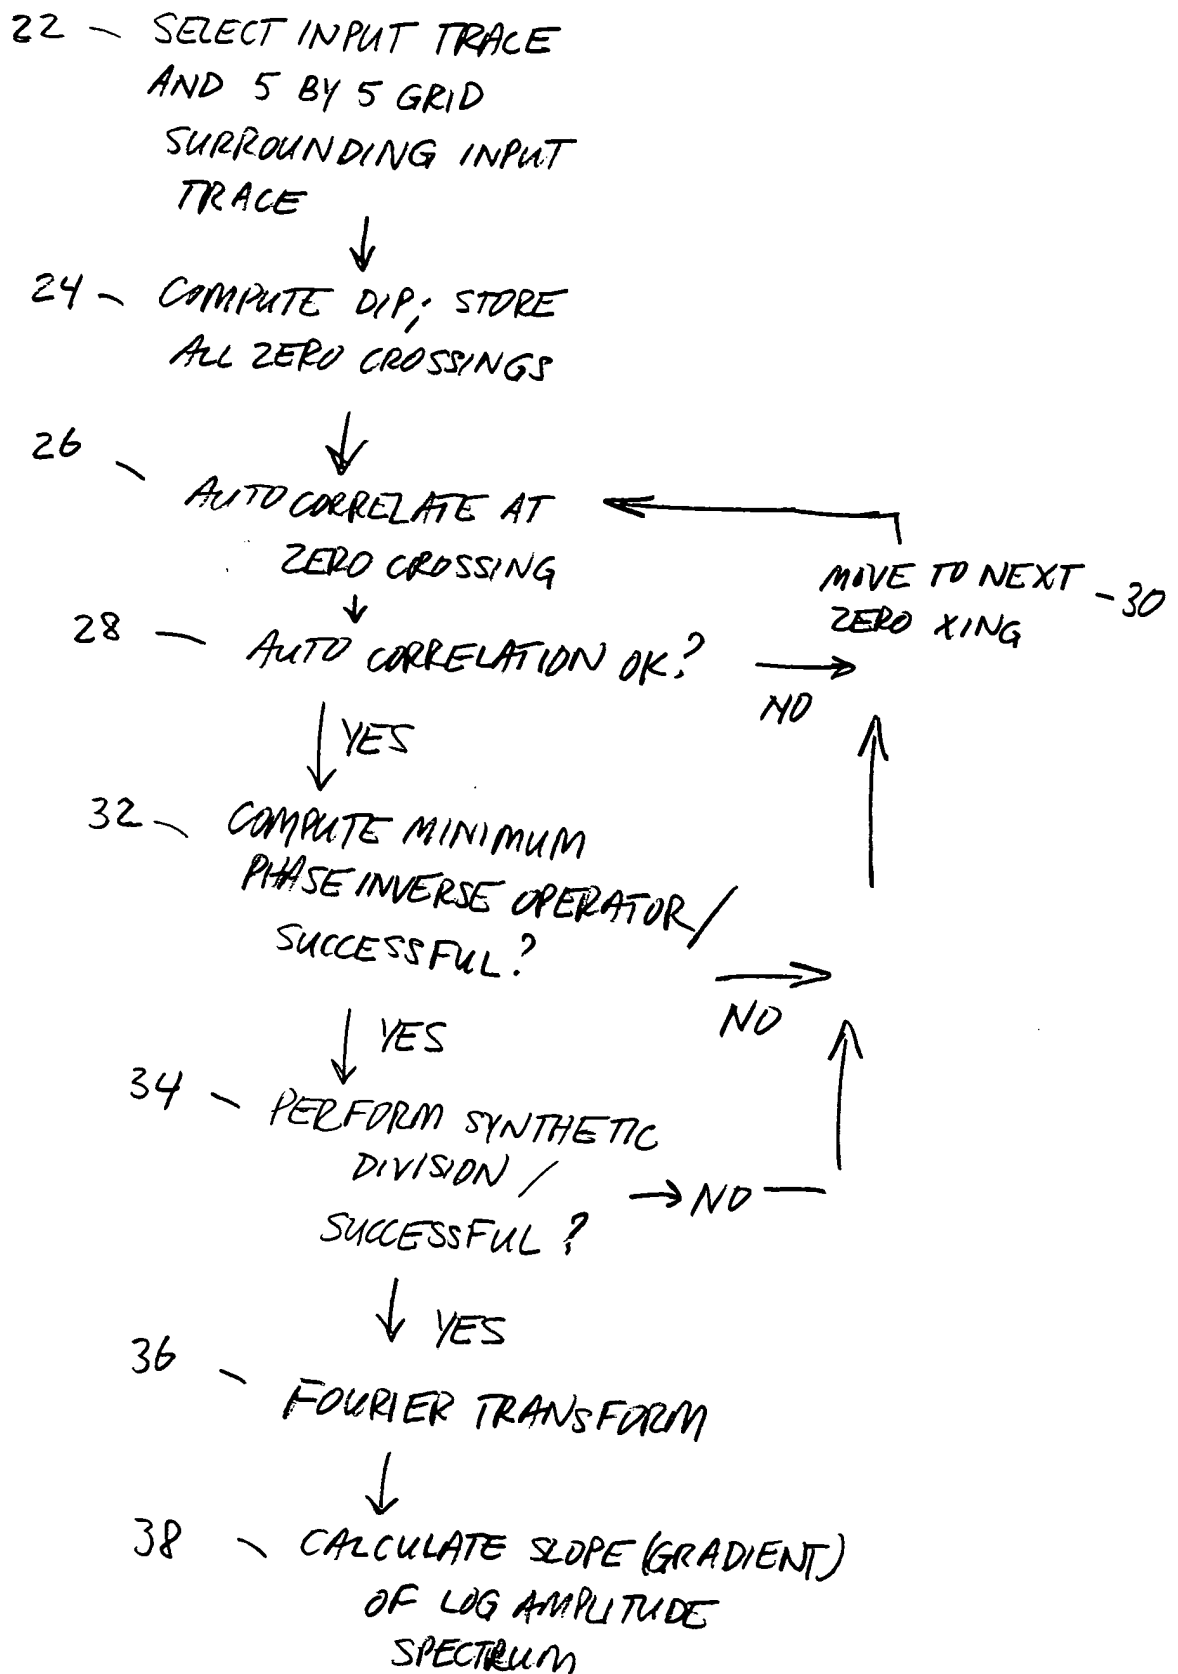 22 - SELECT INPUT TRACE
AND 5 BY 5 GRID
SURROUNDING INPUT
TRACE
24 - COMPUTE DIP; STORE
ALL ZERO CROSSINGS
26 -
AUTOCORRELATE AT
ZERO CROSSING
MOVE TO NEXT - 30
ZERO XING
28 - AUTO CORRELATION OK?
NO
YES
32 - COMPUTE MINIMUM
PHASE INVERSE OPERATOR/
SUCCESSFUL?
NO
YES
34 - PERFORM SYNTHETIC
DIVISION /
NO
SUCCESSFUL?
YES
36 -
FOURIER TRANSFORM
38 - CALCULATE SLOPE (GRADIENT)
OF LOG AMPLITUDE
SPECTRUM